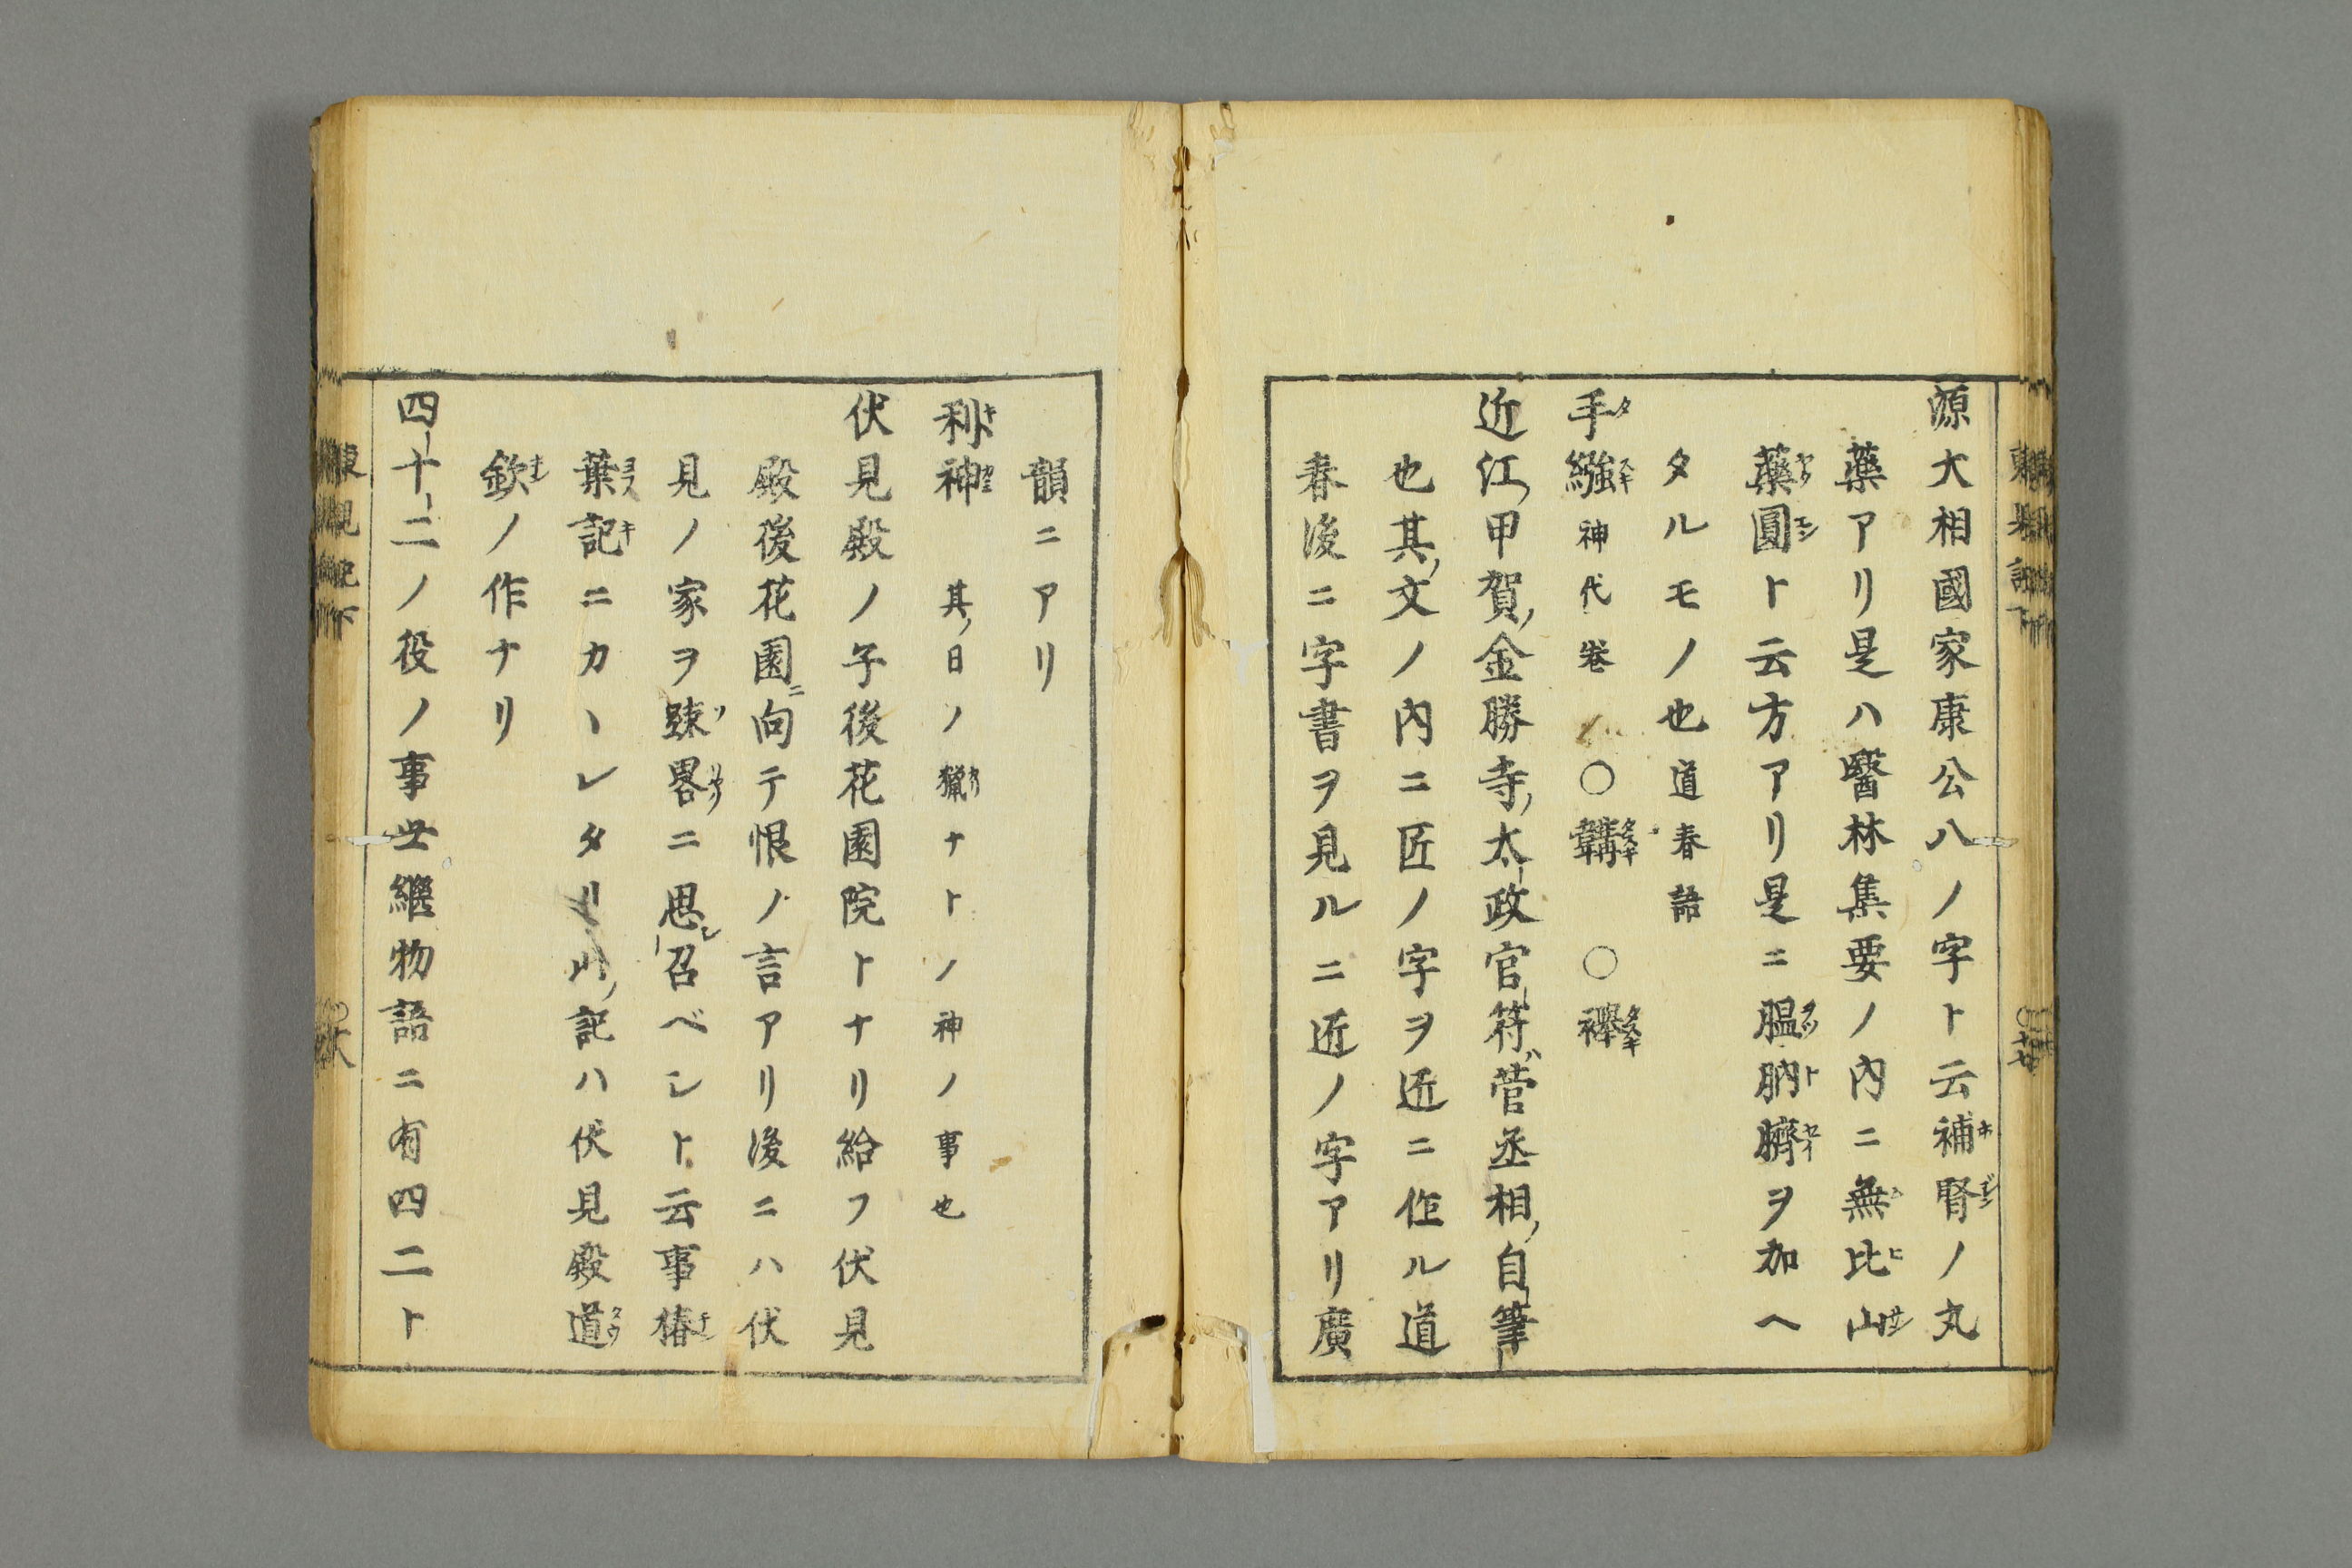 源大相國家康公八ノ字ト云補腎ノ丸
藥アリ是ハ醫林集要ノ内ニ無比山
藥圓ト云方アリ是ニ膃肭臍ヲ加ヘ
タルモノ也道春語
手繦神代卷ノ〇韝〇襷
近江甲賀金勝寺太政官符菅丞相自筆
也其文ノ内ニ匠ノ字ヲ近ニ作ル道
春後ニ字書ヲ見ルニ近ノ字アリ廣
韻ニアリ
利神其日ノ獵ナトノ神ノ事也
伏見殿ノ子後花園院トナリ給フ伏見
殿後花園ニ向テ恨ノ言アリ後ニハ伏
見ノ家ヲ踈畧ニ思召ベシト云事椿
葉記ニカヽレタリ此記ハ伏見殿道
欽ノ作ナリ
四十二ノ役ノ事世繼物語ニ有四二ト